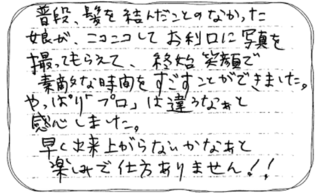 普段、髪を結んだことのなかった
娘が、ニコニコしてお利口に写真を
撮ってもらえて、終始笑顔で
素敵な時間をすごすことができました。
やっぱり「プロ」は違うなぁと
感心しました。
早く出来上がらないかなぁと
楽しみで仕方ありません!!